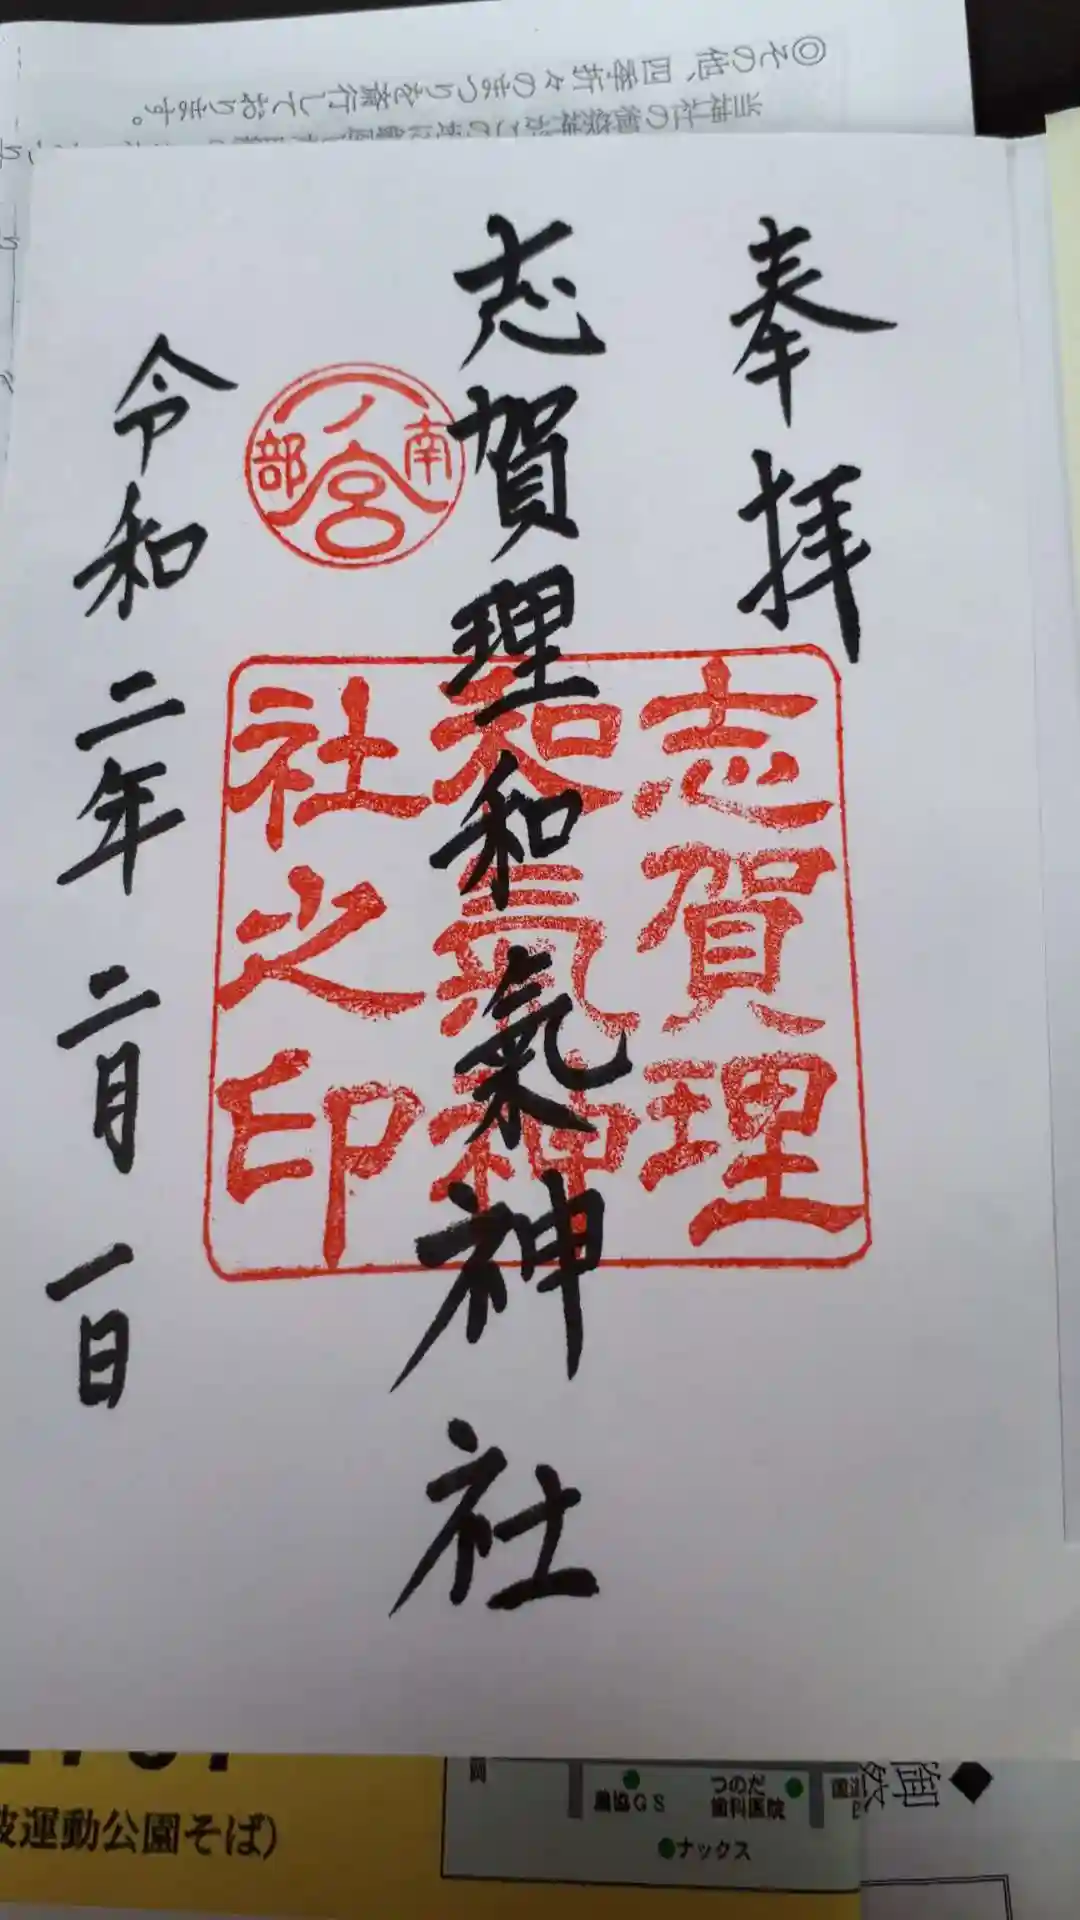 ◎その他、四季折々のまつりを斎行しております。
奉拝
志賀理和氣神社
南部
一ノ宮
志賀理
和氣神
社之印
令和二年二月一日
運動公園そば)
農協GS
つのだ
歯科医院
ナックス
◆御祭